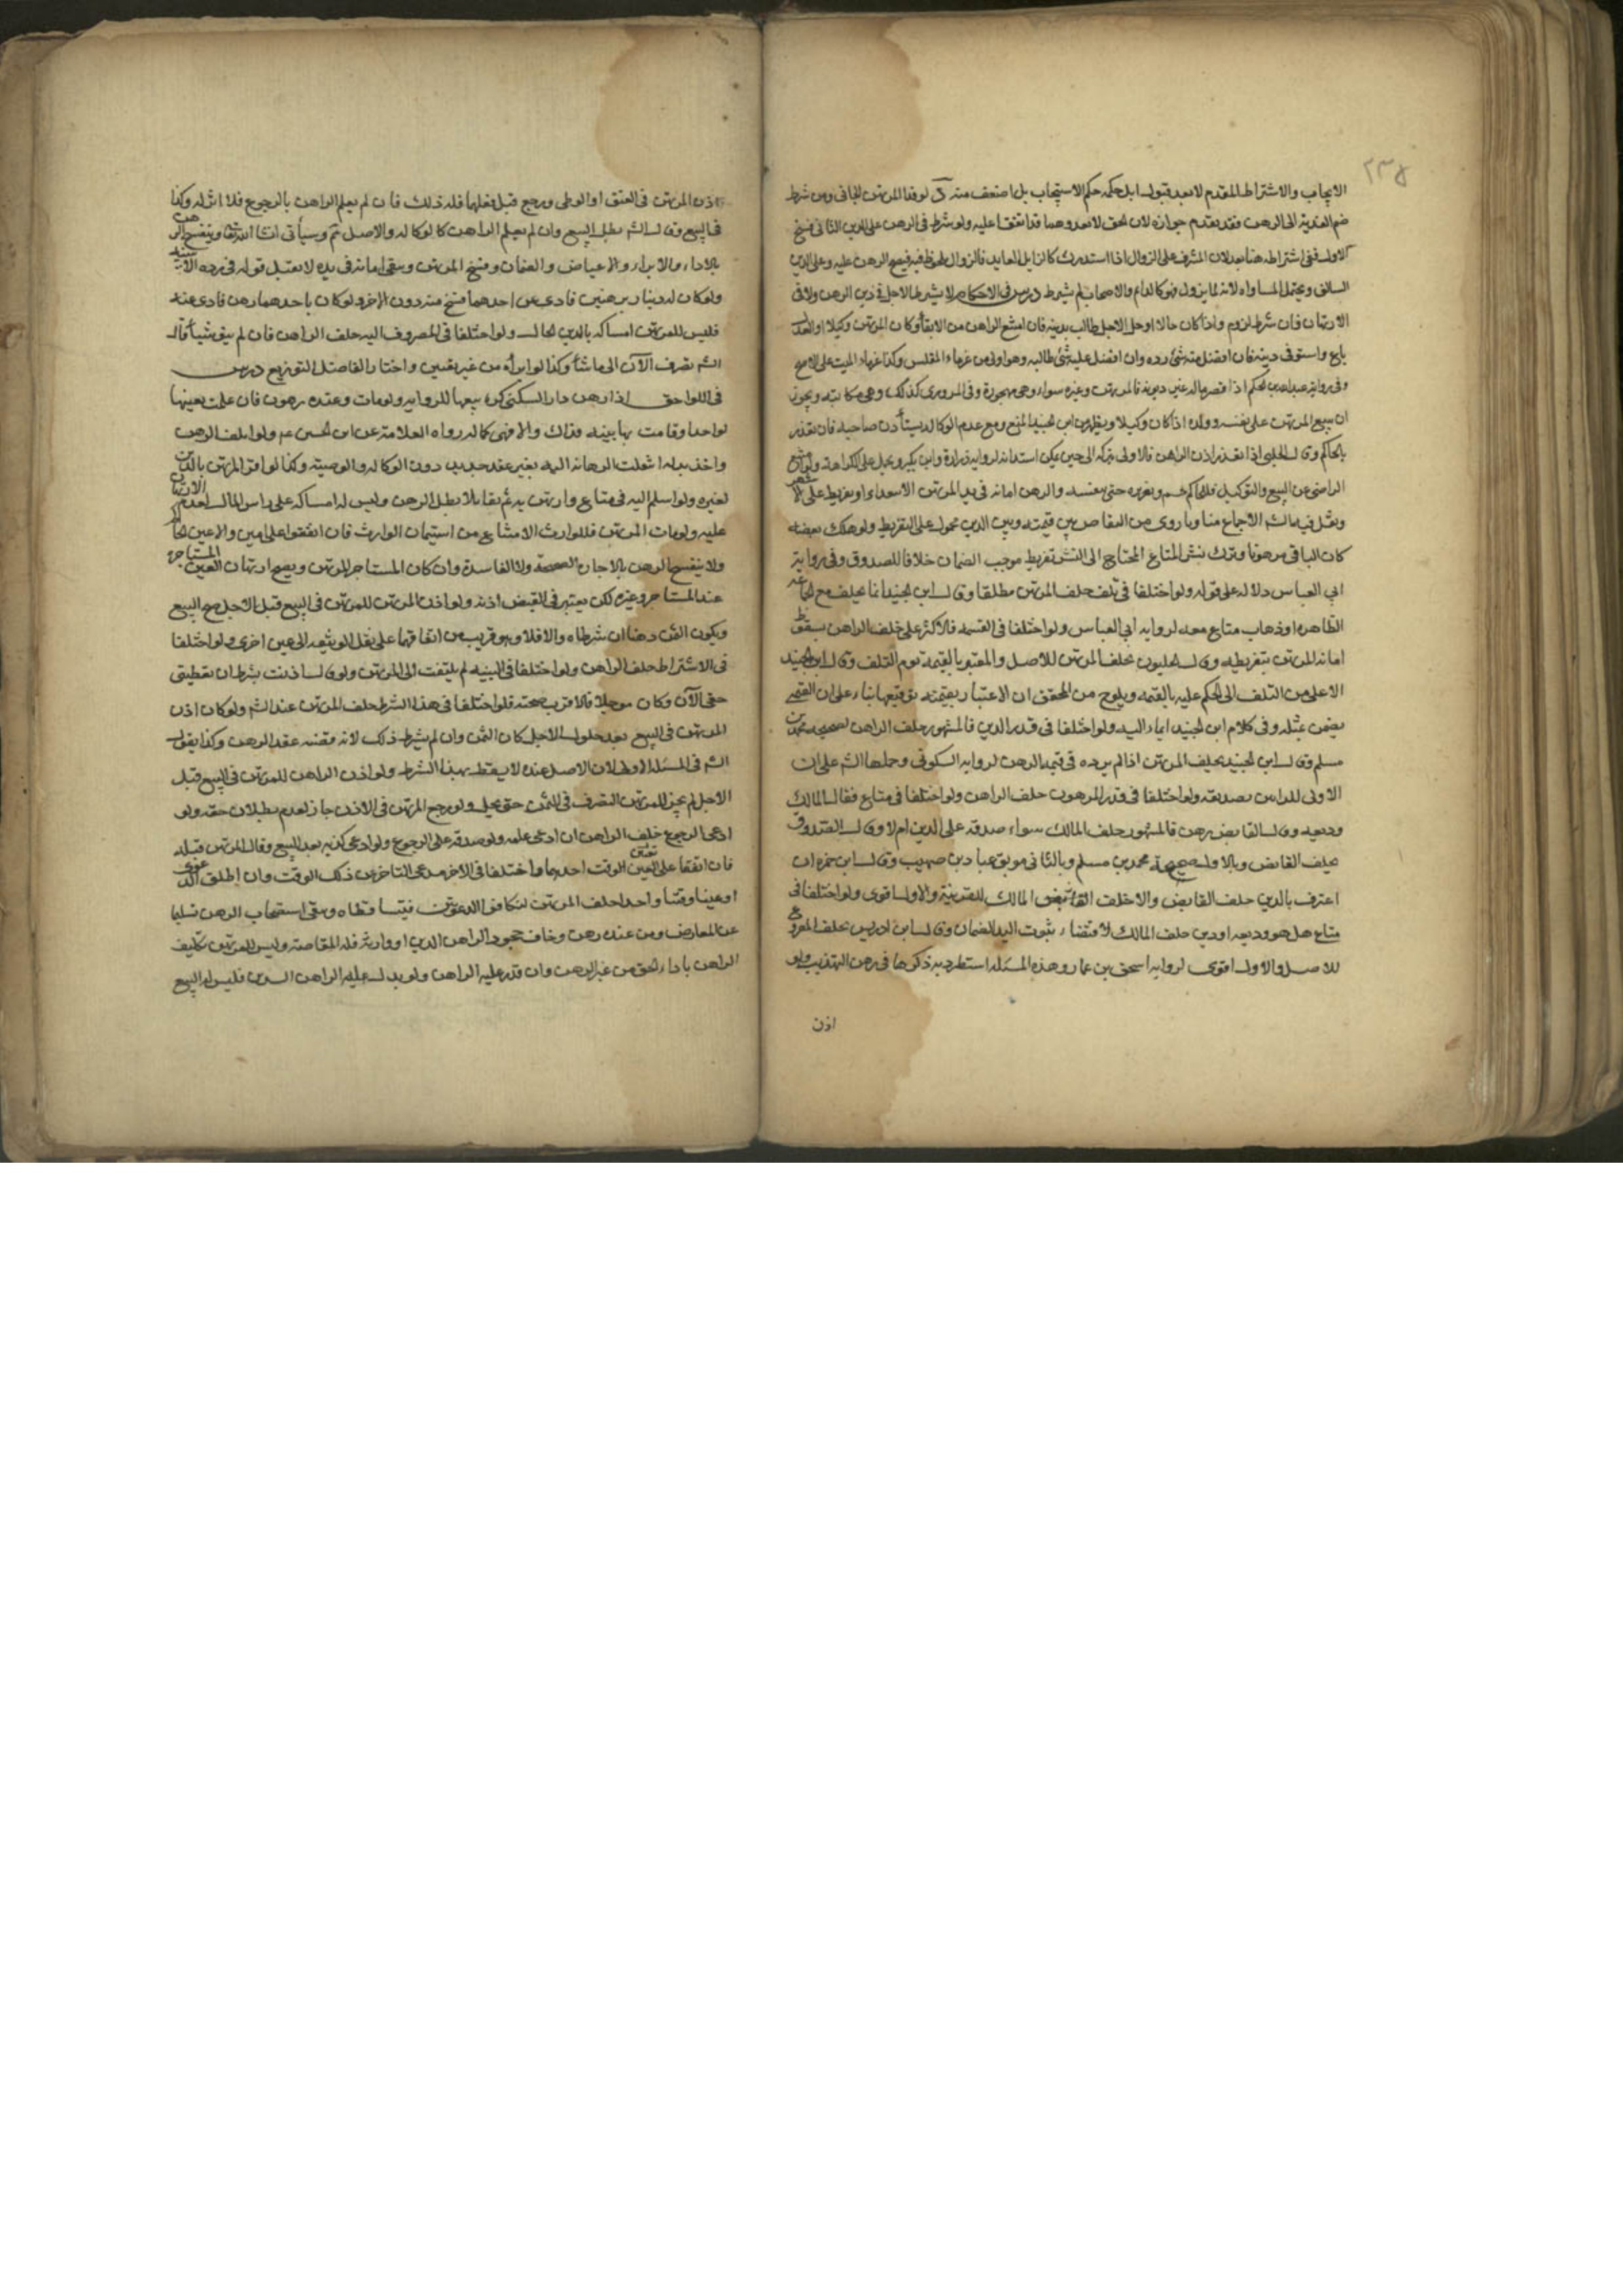 ٢٣٥
الايجاب والاشتراط المقدم لا بعد قبوله ابل حكمه حكم الاستيجاب بل اضعف منه لو فدا المرتهن الجانى ومن شرط
ضم الفدية الى الرهن فقد تقدم جوازه لان الحق لا يعدوهما وقد اتفقا عليه ولو شرط فى الرهن على الدين الثانى فسخ
الاول ففى اشتراطه هنا بعد لان المشرف على الزوال اذا استدرك كالزايل العايد فالزوال ملحوظ فيه فيصح الرهن عليه وعلى الدين
السابق ويحتمل المساواه لانه لما يزول فهو كالدام والاصحاب لم يشترط درس فى الاحكام لا يشترط الاجل فى دين الرهن ولا فى
الارتهان فان شرط لزم واذا كان حالا او حل الاجل طالب بدينه فان امتنع الراهن من الايفاء وكان المرتهن وكيلا او العدل
باع واستوفى دينه فان افضل منه شئ رده وان افضل عليه شئ طالبه وهو اولى من غرماء المفلس وكذا غرماء الميت على الاصح
وفى رواية عبد الله بن الحكم اذا قصر ماله عن ديونه فالمرتهن وغيره سواء وهى مهجورة وفى المروزى كذلك وهى مكاتبه ويجوز
ان يبيع المرتهن على نفسه وولده اذا كان وكيلا ويظهر من ابن الجنيد المنع ومع عدم الوكاله يستأذن صاحبه فان تعذر
بالحاكم وقال الحلبى اذا تعذر اذن الراهن فالاولى تركه الى حين يمكن استيذانه لرواية زرارة وابن بكير ويحمل على الكراهة ولو امتنع
الراهن عن البيع والتوكيل فللحاكم حبسه وتعزيره حتى يبيع بنفسه والرهن امانه فى يد المرتهن الا بتعداء او تفريط على الاشهر
ونقل فيه الشيخ الاجماع منا وما روى من التقاص بين قيمته وبين الدين محمول على التفريط ولو هلك بعضه
كان الباقى مرهونا وترك نشر المتاع المحتاج الى النشر تفريط موجب الضمان خلافا للصدوق وفى رواية
ابى العباس دلاله على قوله ولو اختلفا فى تلف حلف المرتهن مطلقا وقال ابن الجنيد انما يحلف مع الجائحه
الظاهره او ذهاب متاع معه لرواية ابى العباس ولو اختلفا فى القيمه فالاكثر على حلف الراهن لسقوط
امانه المرتهن بتفريطه وقال الحليون يحلف المرتهن للاصل والمعتبر بالقيمه يوم التلف وقال ابن الجنيد
الاعلى من التلف الى الحكم عليه بالقيمه ويلوح من المحقق ان الاعتبار بقيمته يوم قبضها بناء على ان القيمى
يضمن بمثله وفى كلام ابن الجنيد ايماء اليه ولو اختلفا فى قدر الدين فالمشهور حلف الراهن لصحيحه محمد بن
مسلم وقال ابن الجنيد يحلف المرتهن اذا لم يرده فى قيمه الرهن لرواية السكونى وحملها الشيخ على ان
الاولى للراهن تصديقه ولو اختلفا فى قدر المرهون حلف الراهن ولو اختلفا فى متاع فقال المالك
وديعه وقال القابض رهن فالمشهور حلف المالك سواء صدقه على الدين ام لا وقال الصدوق
يحلف القابض وبالاول صحيحة محمد بن مسلم وبالثانى موثق عباد بن صهيب وقال ابن حمزه ان
اعترف بالدين حلف القابض والا حلف المالك للقرينة والاول اقوى ولو اختلفا فى
متاع هل هو وديعه او دين حلف المالك لاقتضاء ثبوت اليد الضمان وقال ابن ادريس يحلف
للاصل والاول اقوى لرواية اسحق بن عمار وهذه المسئله استطردنا ذكرها فى رهن التهذيب ولو
اذن
اذن المرتهن فى العتق او الوطى ورجع قبل فعلهما فله ذلك فان لم يعلم الراهن بالرجوع فلا اثر له وكذا
فى البيع وقال الشيخ يبطل البيع وان لم يعلم الراهن كالوكاله والاصل ثم وسيأتى انشاء الله تعالى وينفسخ الرهن
بالاداء والابراء والاعتياض والضمان وفسخ المرتهن ويبقى امانه فى يده لا يقبل قوله فى رده الا ببينه
ولو كان له دينار برهنين فادى عن احدهما فسخ منه دون الاخر ولو كان باحدهما رهن فادى عنه
فليس للمرتهن امساكه بالدين الحال ولو اختلفا فى المصروف اليه حلف الراهن فان لم ينو شيئا قال
الشيخ تصرف الآن الى ما شاء وكذا لو ابرأه من غير تعيين واختار الفاضل التوزيع درس
فى اللواحق اذا رهن دار السكنى كره بيعها للرواية ولو مات وعنده رهون فان علمت بعينها
لواحد او قامت بها بينه فذاك والا فهى كماله رواه العلامة عن ابى الحسن ع م ولو اتلف الرهن
واخذ بدله انتقلت الرهانه اليه بغير عقد جديد دون الوكاله والوصيه وكذا لو اقر المرتهن بالدين
لغيره ولو اسلم اليه فى متاع وارتهن به ثم تقايلا بطل الرهن وليس له امساكه على راس المال لعدم الارتهان
عليه ولو مات المرتهن فللوارث الامتناع من استيمان الوارث فان اتفقوا على امين والا عين الحاكم
ولا ينفسخ الرهن بالاجارة الصحيحة ولا الفاسدة وان كان المستاجر المرتهن ويصح ارتهان العين المستاجرة
عند المستاجر وغيره لكن يعتبر فى القبض اذنه ولو اذن المرتهن للمرتهن فى البيع قبل الاجل صح البيع
ويكون الثمن رهنا ان شرطاه والا فلا وهو قريب من اتفاقهما على نقل الوثيقه الى عين اخرى ولو اختلفا
فى الاشتراط حلف الراهن ولو اختلفا فى البينه لم يلتفت الى المرتهن ولو قال اذنت بشرط ان تعطينى
حقى الآن وكان موجلا فالاقرب صحته فلو اختلفا فى هذا الشرط حلف المرتهن عند الشيخ ولو كان اذن
المرتهن فى البيع بعد حلول الاجل كان الثمن وان لم يشترط ذلك لانه مقتضى عقد الرهن وكذا يقول
الشيخ فى المسئله الاولى لان الاصل عنده لا يعقد بهذا الشرط ولو اذن الراهن للمرتهن فى البيع قبل
الاجل لم يجز للمرتهن التصرف فى الثمن حتى يحل ولو رجع المرتهن فى الاذن جاز لعدم بطلان حقه ولو
ادعى الرجوع حلف الراهن ان ادعى علمه ولو صدقه على الرجوع ولو ادعى كونه بعد البيع وقال المرتهن قبله
فان اتفقا على تعيين الوقت احدهما واختلفا فى الاخر مدعى التاخر عن ذلك الوقت وان اطلق الدعوى
او عينا وقتا واحدا حلف المرتهن لتكافؤ الدعوتين فيتساقطاه ويبقى استصحاب الرهن سليما
عن المعارض ومن عنده رهن وخاف جحود الراهن الدين او وارثه فله المقاصه وليس للمرتهن تكليف
الراهن باداء الحق من غير الرهن وان قدر عليه الراهن ولو بدل عليه الراهن الدين فليس له البيع